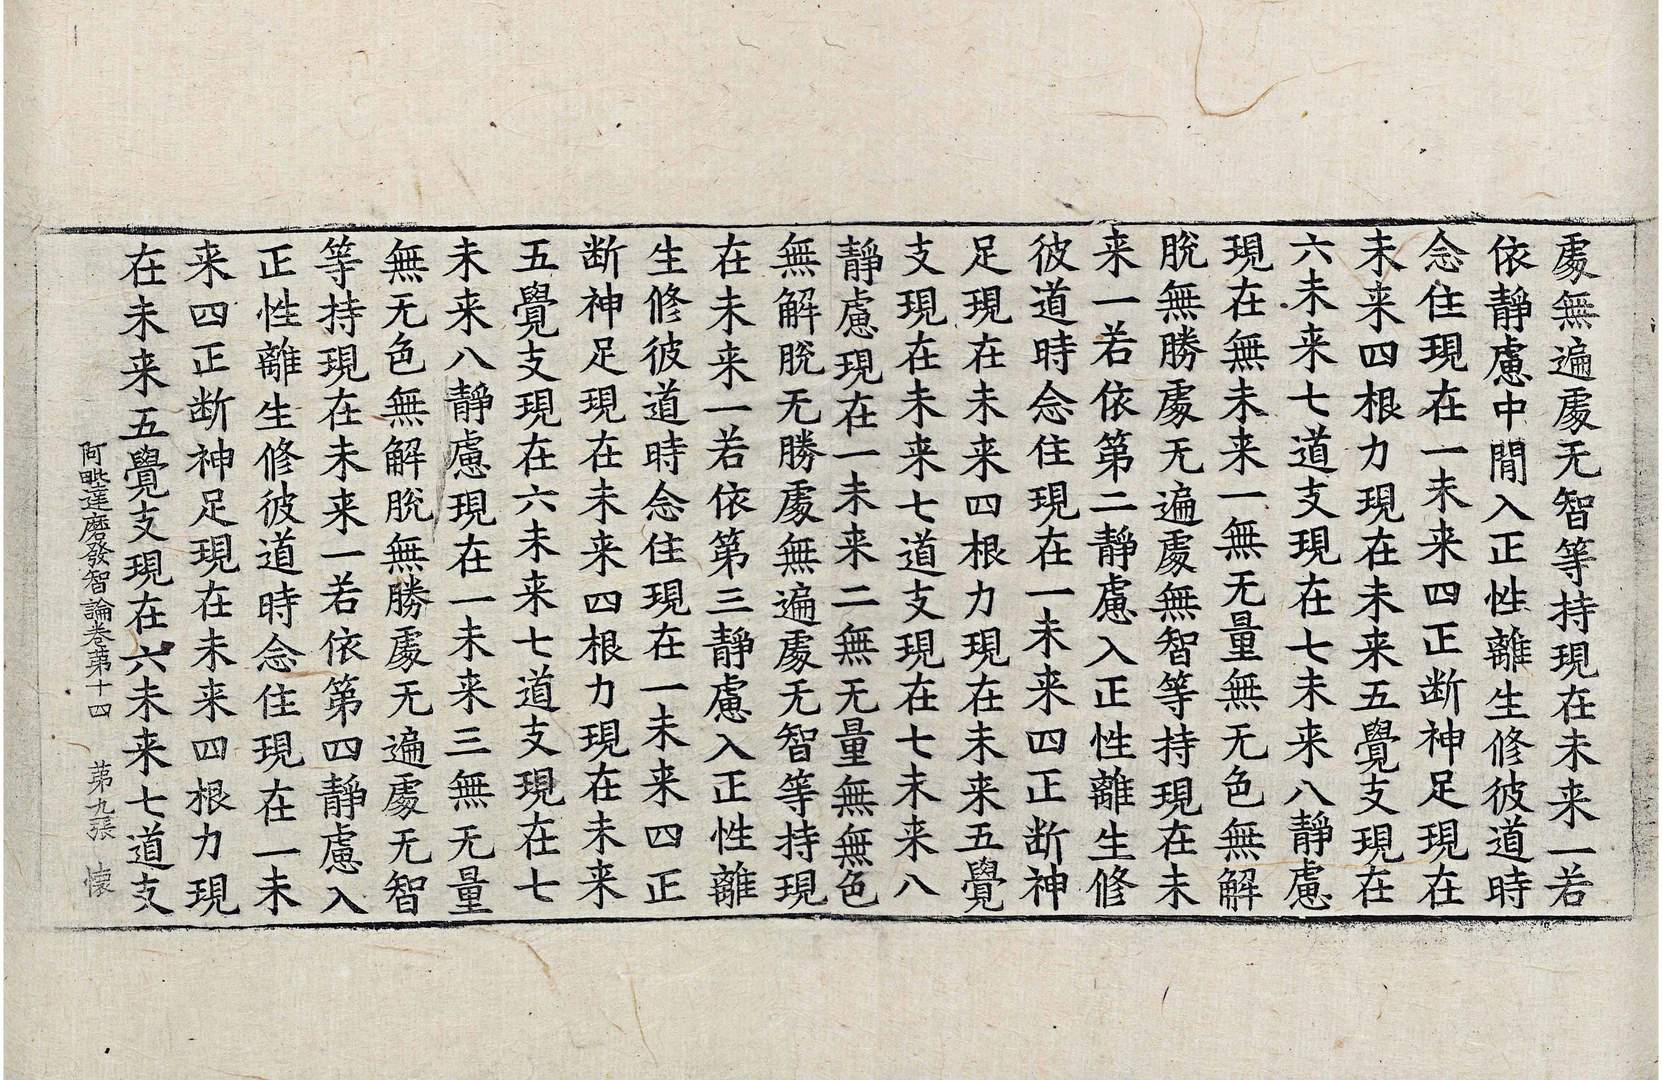 處無遍處无智等持現在未来一若
依靜慮中閒入正性離生修彼道時
念住現在一未来四正断神足現在
未来四根力現在未来五覺支現在
六未来七道支現在七未来八靜慮
現在無未来一無无量無无色無解
脫無勝處无遍處無智等持現在未
来一若依第二靜慮入正性離生修
彼道時念住現在一未来四正断神
足現在未来四根力現在未来五覺
支現在未来七道支現在七未来八
靜慮現在一未来二無无量無無色
無解脫无勝處無遍處无智等持現
在未来一若依第三靜慮入正性離
生修彼道時念住現在一未来四正
断神足現在未来四根力現在未来
五覺支現在六未来七道支現在七
未来八靜慮現在一未来三無无量
無无色無解脫無勝處无遍處无智
等持現在未来一若依第四靜慮入
正性離生修彼道時念住現在一未
来四正断神足現在未来四根力現
在未来五覺支現在六未来七道支
阿毗達磨發智論卷第十四 第九張 懷